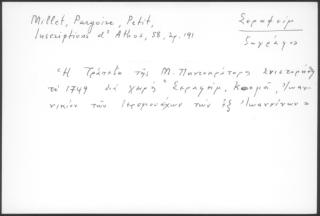 Millet, Pargoire, Petit,
Inscriptions d'Athos, 58, ἀρ. 191
Σεραφείμ
ζωγράφος
«Ἡ Τράπεζα τῆς Μ. Παντοκράτορος ἱστορήθη
τὸ 1749 διὰ χειρὸς Σεραφείμ, Κοσμᾶ, Ἰωαν-
νικίου τῶν Ἱερομονάχων τῶν ἐξ Ἰωαννίνων»